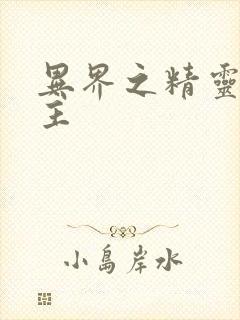 異界之精靈
主
小島岸水